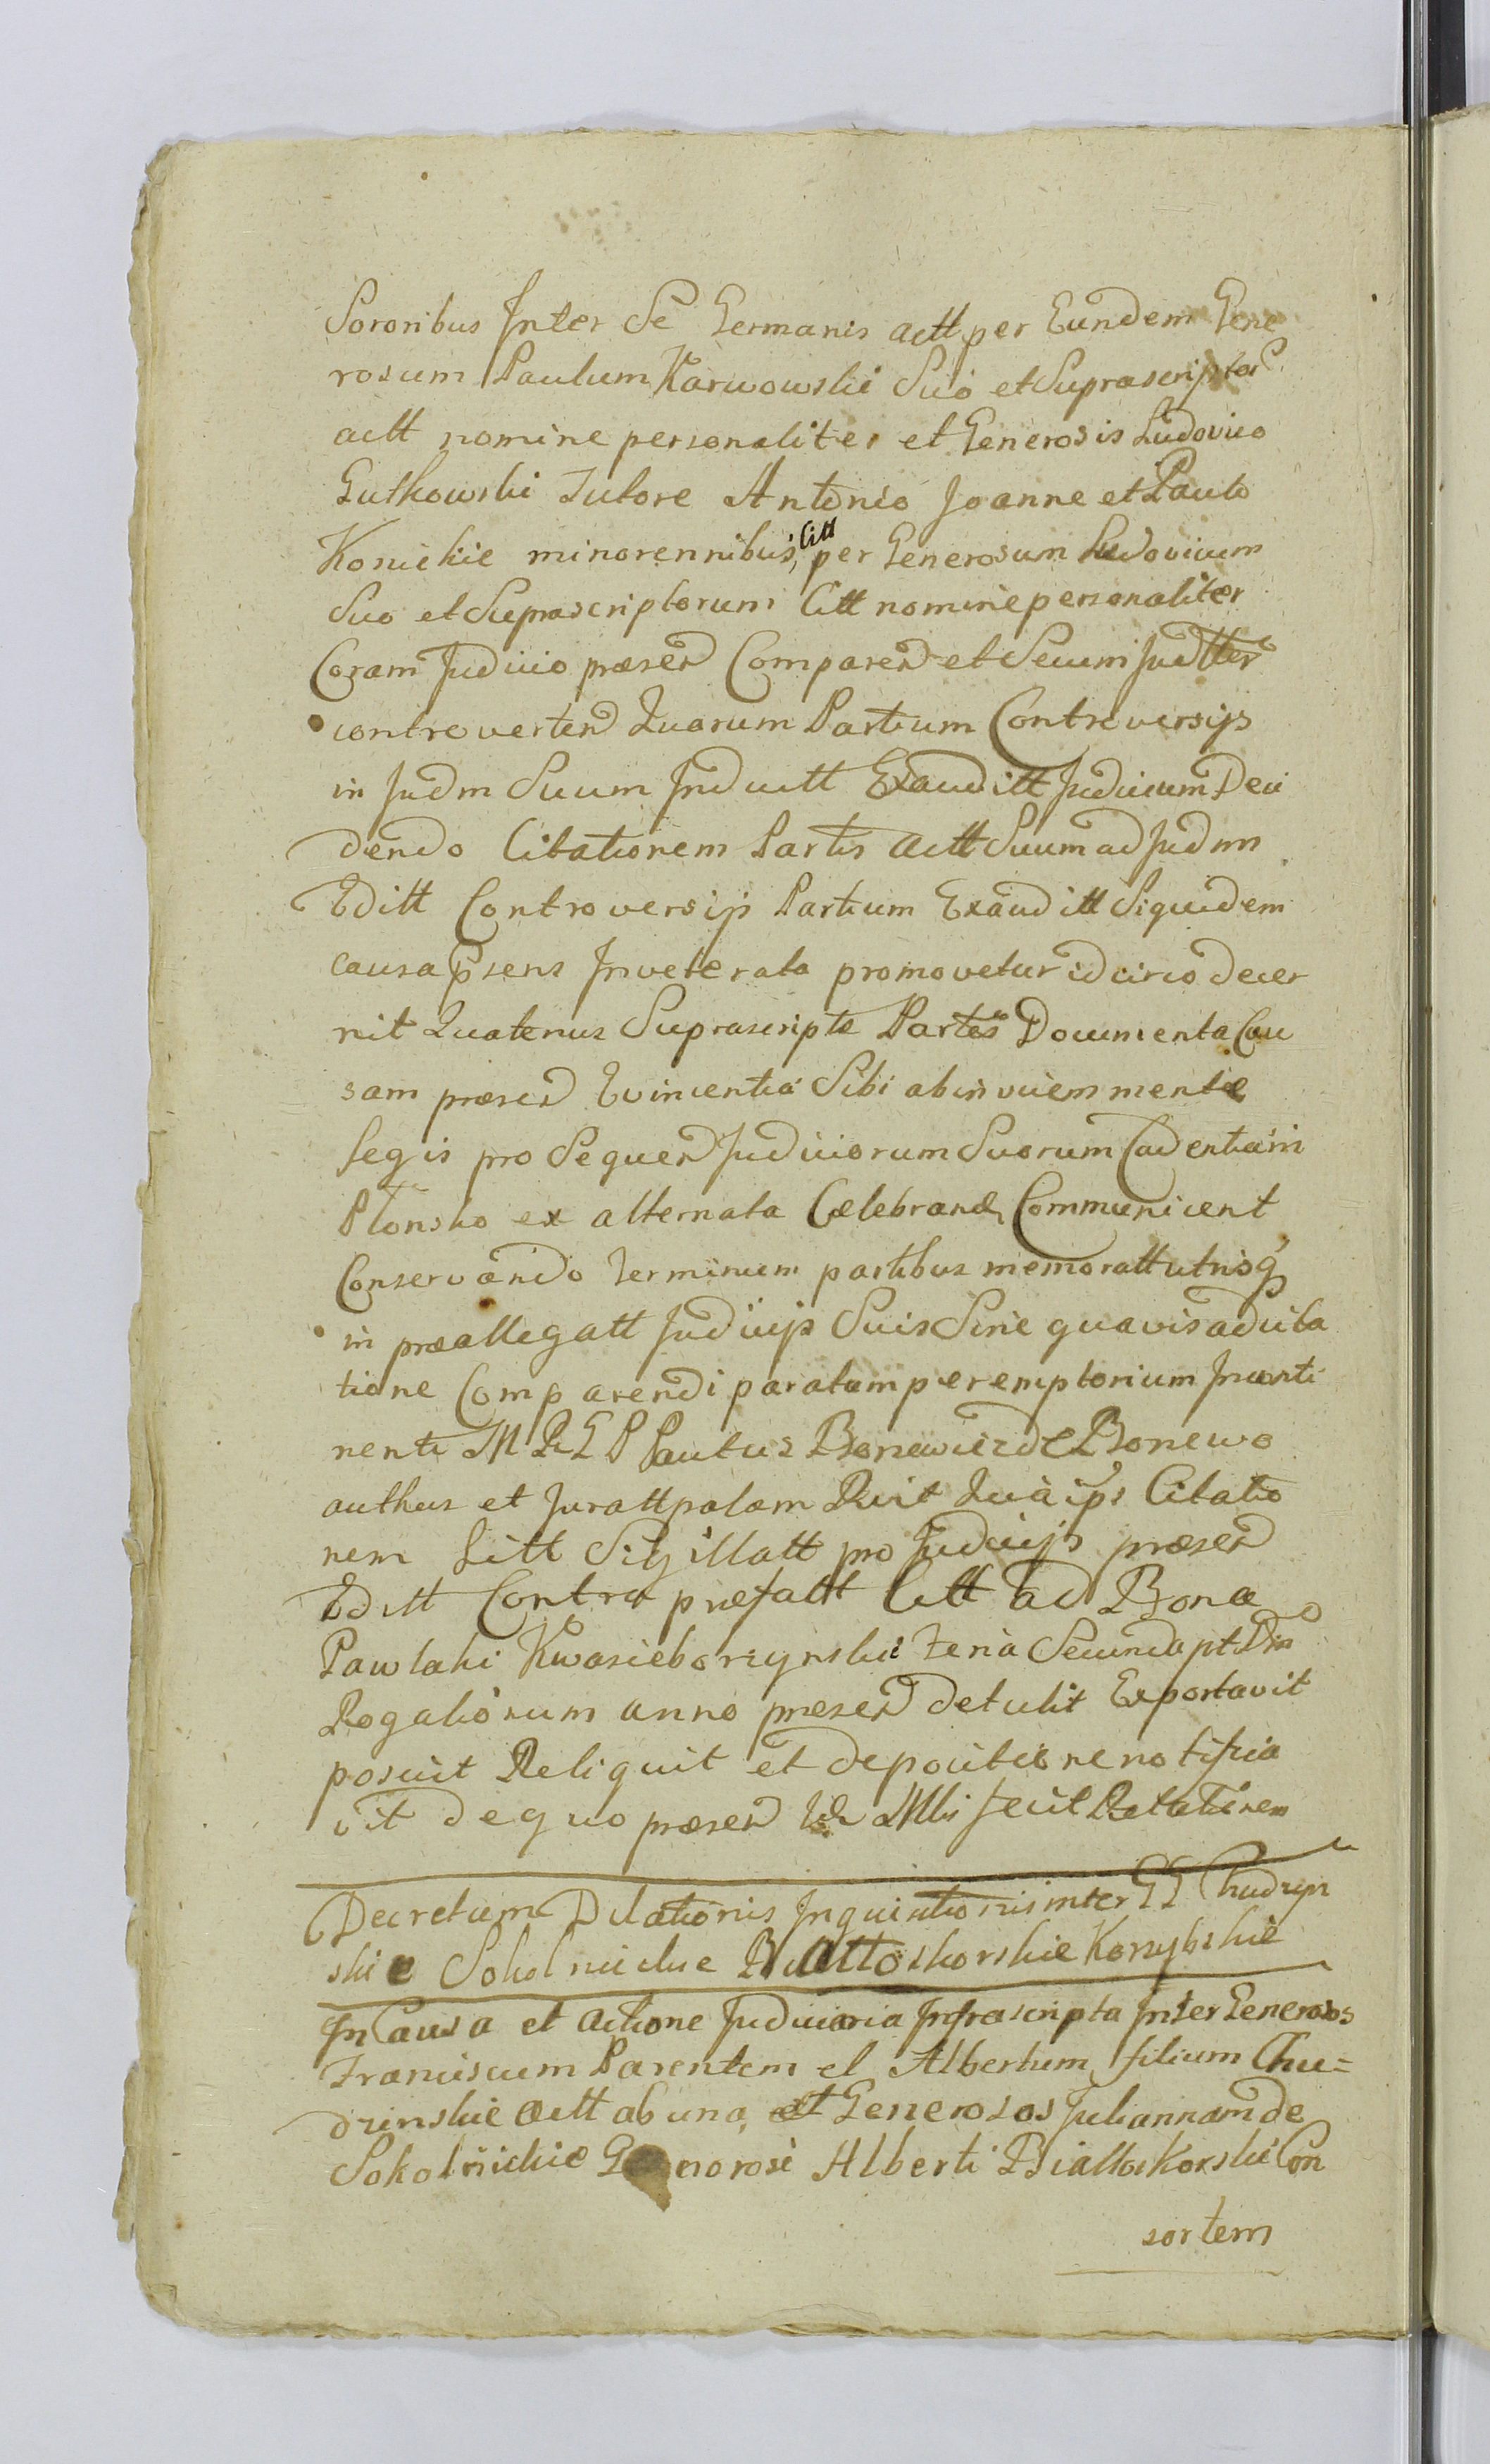 Sororibus Inter Se Germanis actt per Eundem Gene
rosum Paulum Karwowski Suo et Suprascriptor
actt nomine personaliter et Generosis Ludovico
Gutkowski Tutore Antonio Joanne et Paulo
Konickie minorennibus, Citt per Generosum Ludovicum
Suo et Suprascriptorum Citt nomine personaliter
Coram Judicio præsen Comparen et Secum Judtter
controverten Quorum Partium Controversijs
in Judm Suum Inductt Exauditt Judicium Deci
dendo Citationem Partis Actt Suum ad Judm
Editt Controversijs Partium Exauditt Siquidem
causa Psens Inveterata promovetur idcirco decer
nit Quatenus Suprascriptæ Partes Documenta Cau
sam præsen Evincentia Sibi abinvicem mente
Legis pro Sequen Judiciorum Suorum Cadentia in
Płonsko ex alternata Celebran Communicent
Conservando Terminum partibus memoratt utrisq
in præallegatt Judicijs Suis Sine quavis adcita
tione Comparendi paratum peremptorium Inconti
nenti M R G P Paulus Bonewicz de Bonewo
authus et Juratt palam Rcit Quia ips Citatio
nem Litt Sigillatt pro Judicijs præsen
Editt Contra præfatt Citt ad Bona
Pawłaki Kwasieborzynskie Feria Secunda pt Dm
Rogationum anno præsen detulit Exportavit
posuit Reliquit et depositione notifica
vit de quo præsen Illi fecit Relationem
Decretum Dilationis Inquisitionis inter GG Chudzyn
skie Sokolnickie Białłoskorskie Korzybskie
In Causa et Actione Judiciaria Infrascripta Inter Generosos
Franciscum Parentem et Albertum filium Chu=
dzinskie Actt ab una, et Generosos Juliannam de
Sokolnickie Generosi Alberti Białłoskorski Con
sortem